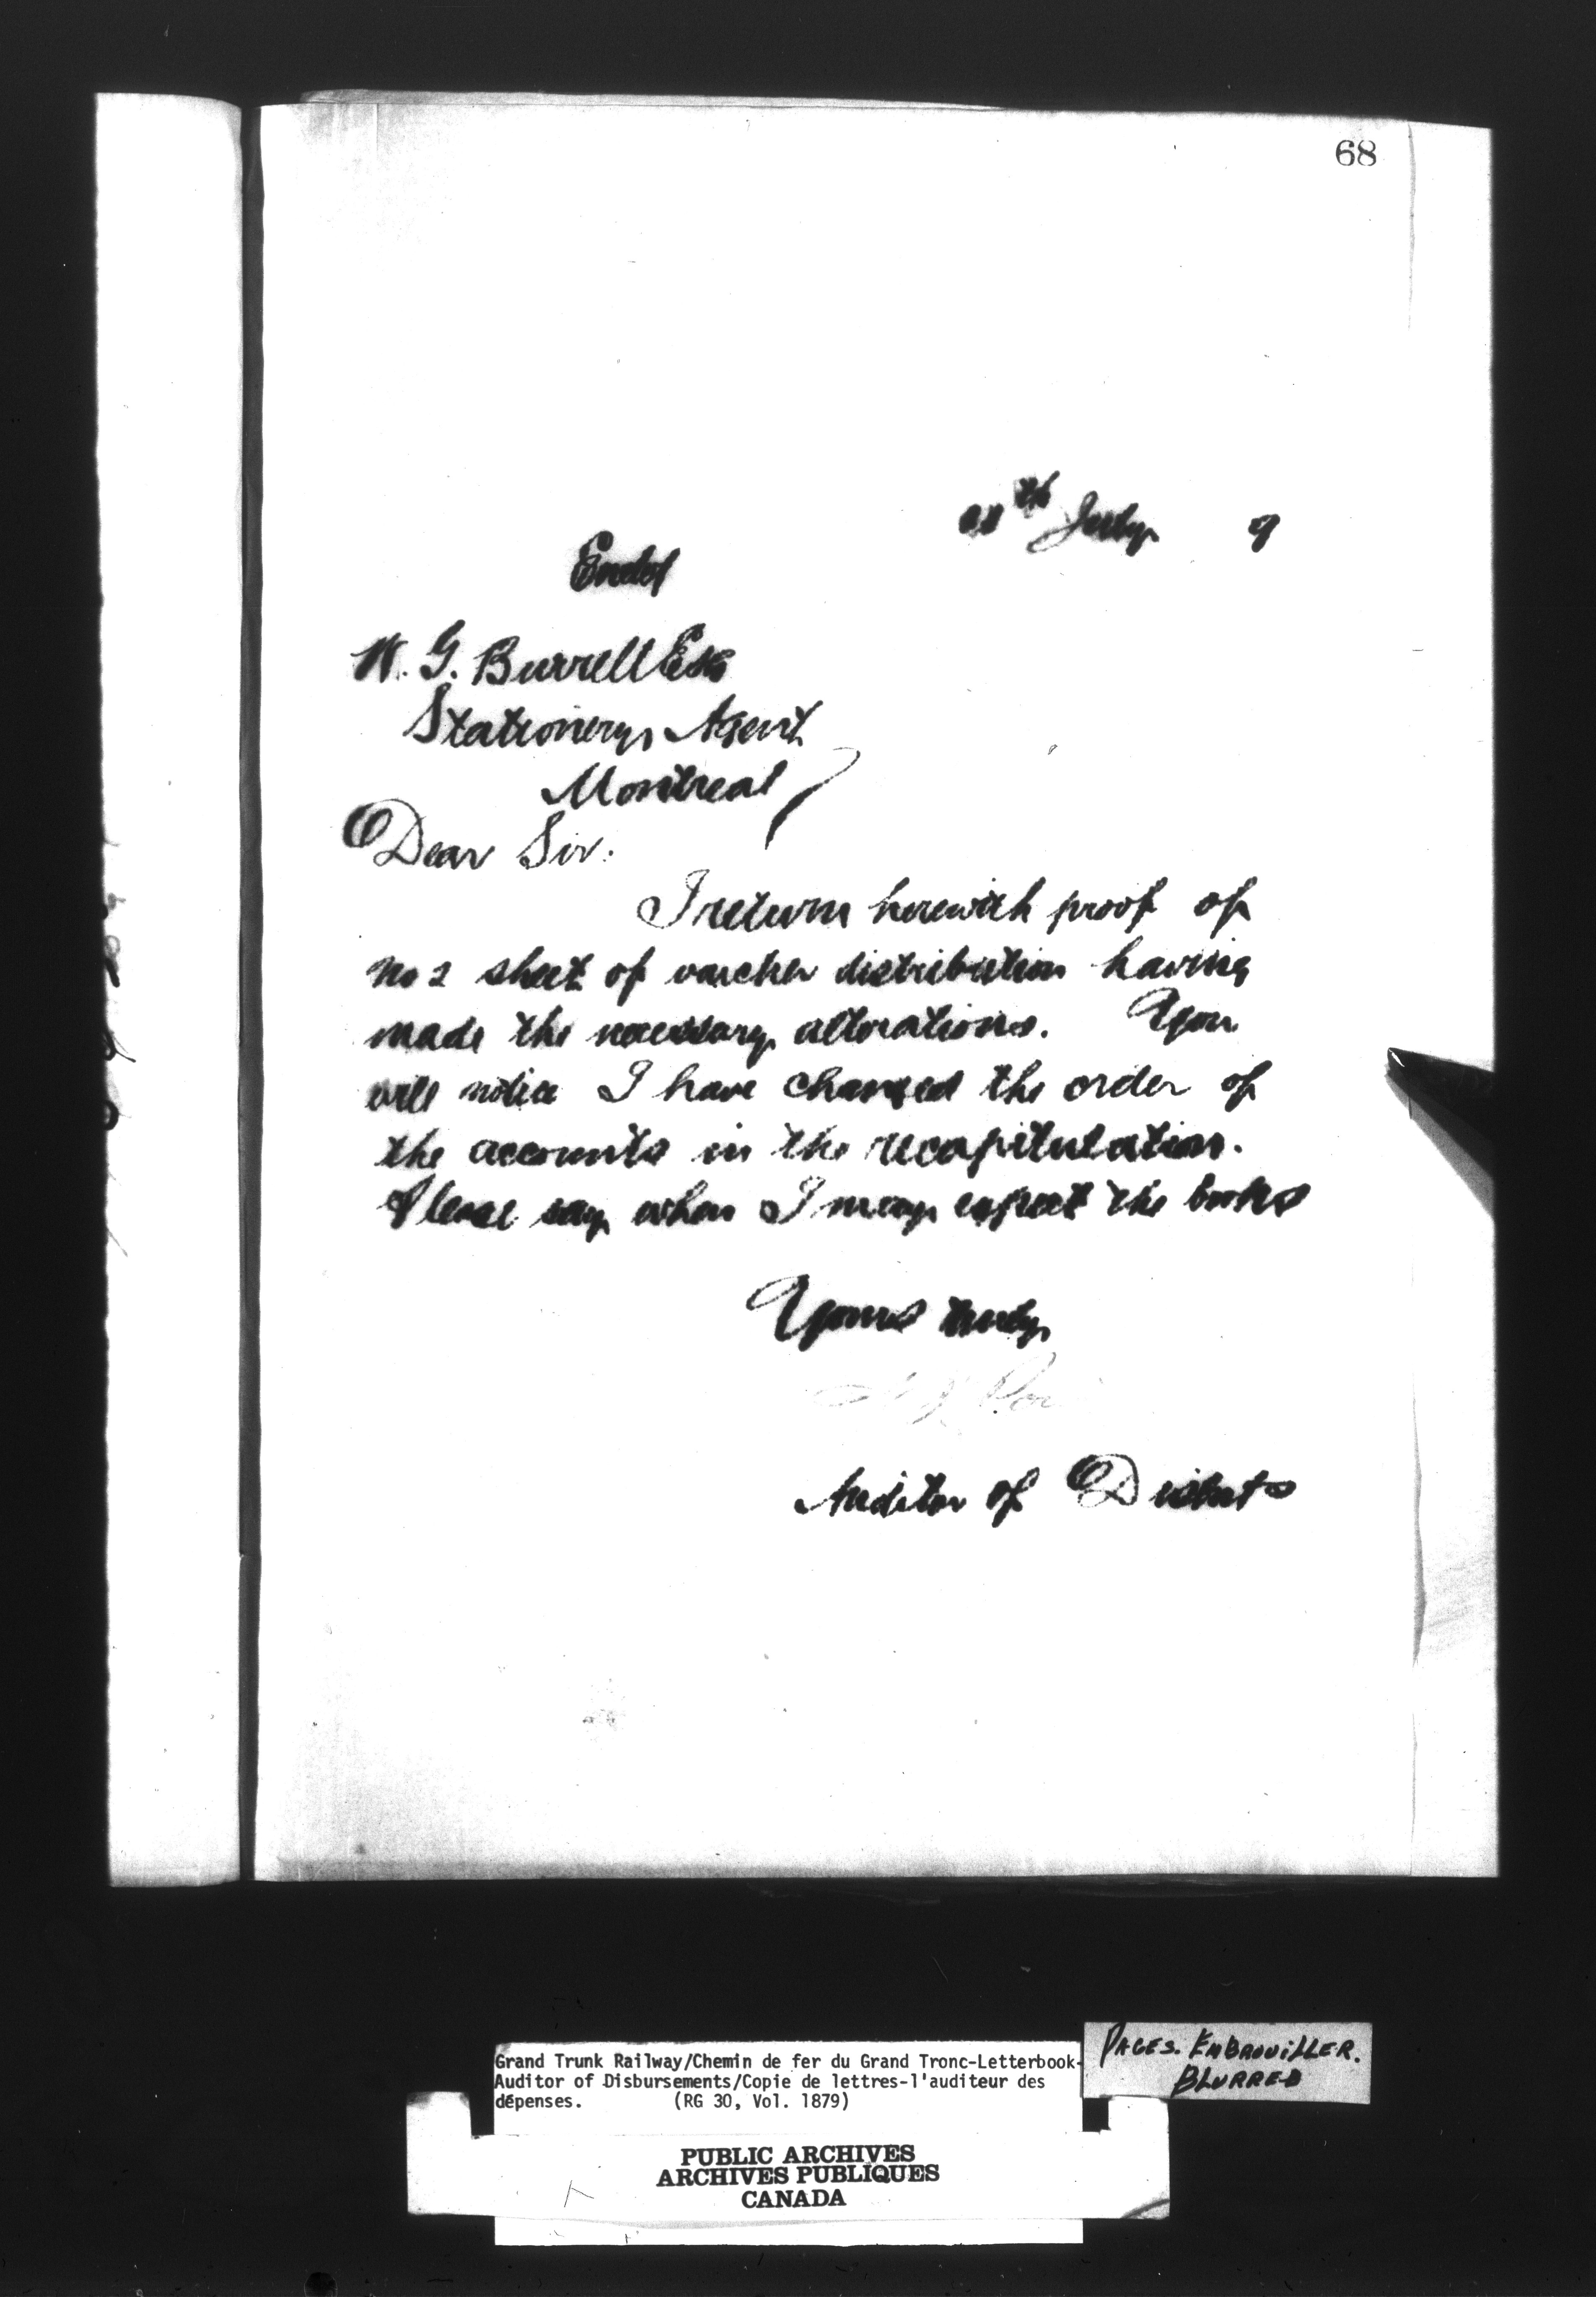 68
th July 9
Encl
W. G. Burrell Esq
Stationery Agent
Montreal
Dear Sir:
I return herewith proof of
No 2 sheet of voucher distribution having
made the necessary alterations. You
will notice I have changed the order of
the accounts in the recapitulation.
Please say when I may expect the books
Yours truly
Auditor of Disbts
Grand Trunk Railway/Chemin de fer du Grand Tronc-Letterbook-
Auditor of Disbursements/Copie de lettres-l'auditeur des
dépenses. (RG 30, Vol. 1879)
PAGES. EMBROUILLER.
BLURRED
PUBLIC ARCHIVES
ARCHIVES PUBLIQUES
CANADA